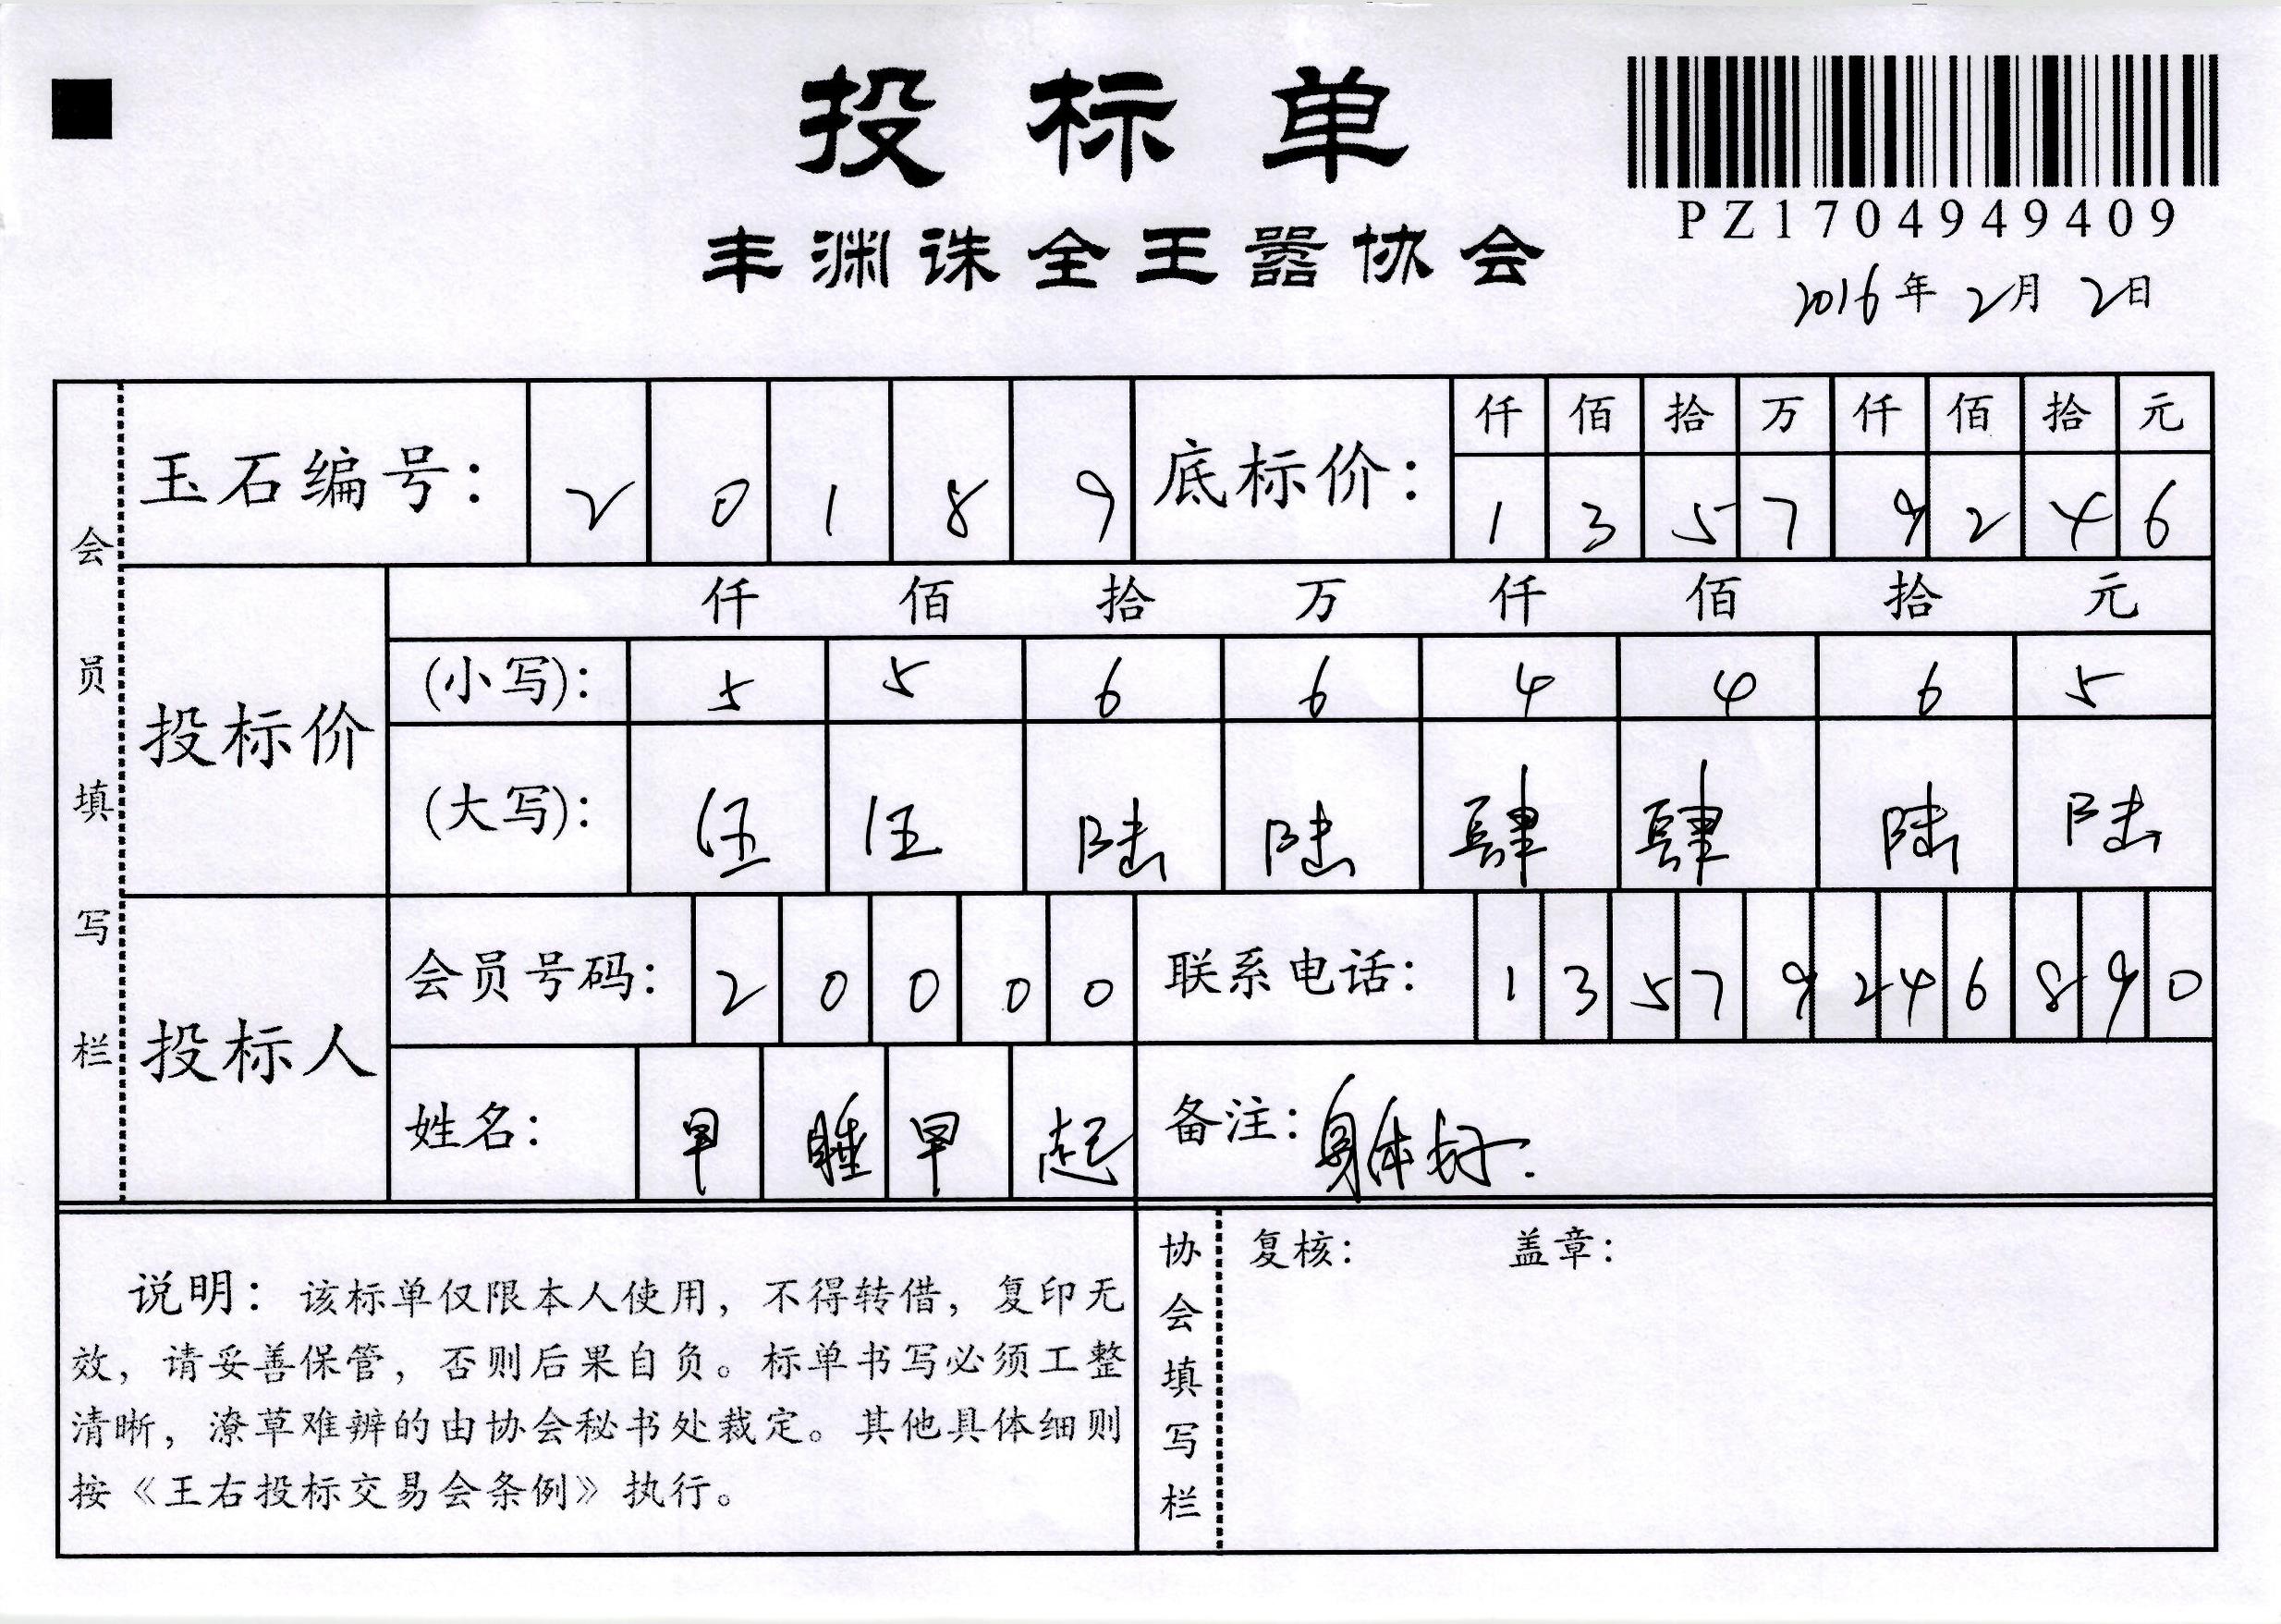 投标单
PZ1704949409
丰渊诛全王嚣协会
2016年2月2日
会员填写栏
玉石编号: 2 0 1 8 9
底标价: 仟 佰 拾 万 仟 佰 拾 元
1 3 5 7 9 2 4 6
投标价
仟 佰 拾 万 仟 佰 拾 元
(小写): 5 5 6 6 4 4 6 5
(大写): 伍 伍 陆 陆 肆 肆 陆 陆
投标人
会员号码: 2 0 0 0 0
联系电话: 1 3 5 7 9 2 4 6 8 9 0
姓名: 早 睡 早 起
备注: 身体好.
说明: 该标单仅限本人使用, 不得转借, 复印无
效, 请妥善保管, 否则后果自负。标单书写必须工整
清晰, 潦草难辨的由协会秘书处裁定。其他具体细则
按《王右投标交易会条例》执行。
协会填写栏
复核: 盖章: